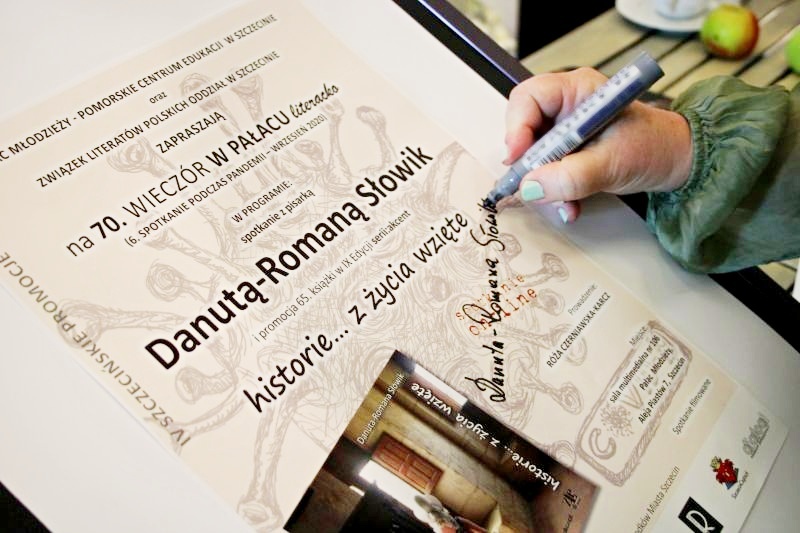 C MŁODZIEŻY - POMORSKIE CENTRUM EDUKACJI W SZCZECINIE
oraz
ZWIĄZEK LITERATÓW POLSKICH ODDZIAŁ W SZCZECINIE
ZAPRASZAJĄ
na 70. WIECZÓR W PAŁACU literacko
(6. SPOTKANIE PODCZAS PANDEMII – WRZESIEŃ 2020)
W PROGRAMIE:
spotkanie z pisarką
Danutą-Romaną Słowik
i promocja 65. książki w IX Edycji serii akcent
historie... z życia wzięte
IV SZCZECIŃSKIE PROMOCJE
Danuta-Romana Słowik
spotkanie
online
Prowadzenie:
RÓŻA CZERNIAWSKA-KARCZ
Miejsce:
sala multimedialna nr 106
Pałac Młodzieży,
Aleja Piastów 7, Szczecin
Spotkanie filmowane
Danuta-Romana Słowik
historie... z życia wzięte
Miasta Szczecin